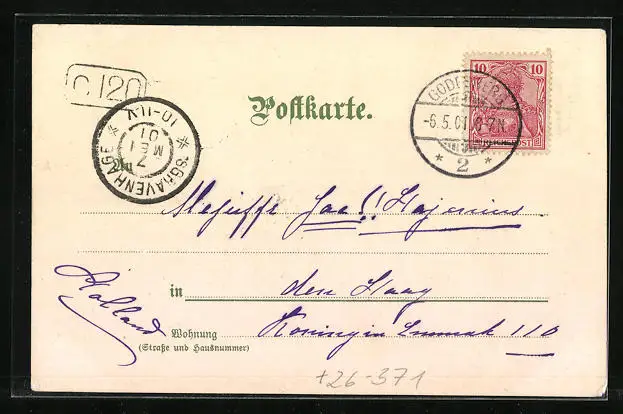 C 120
Postkarte.
10
10
REICHSPOST
GODESBERG
-6.5.01.6-7N.
* 2 *
'SGRAVENHAGE
10-11.V
7
MEI
01
An
Mejuffr Jac. Hajenius
in den Haag
Holland
Wohnung Koningin Emmak 110
(Straße und Hausnummer)
+26-371